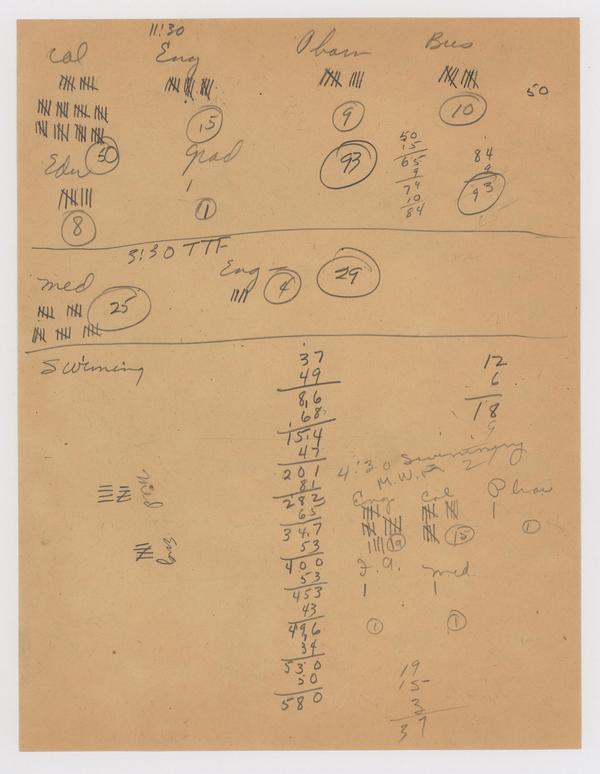 11:30
Col Eng Pharm Bus
50
50
15
9
10
Edu Grad
8
1
93
50
15
65
9
74
10
84
84
9
93
3:30 TTF
Med 25
Eng 4
29
Swimming
37
49
86
68
154
47
201
81
282
65
347
53
400
53
453
43
496
34
530
50
580
12
6
18
9
4:30 Swimming
M.W.F. 2
Eng Col Phar
19
15
1
Med
1
1
Med
Eng
19
15
3
37